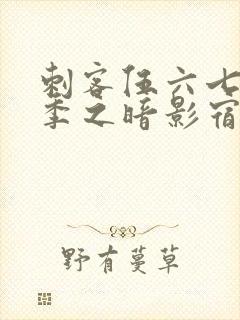 刺客伍六七
季之暗影宿
野有蔓草